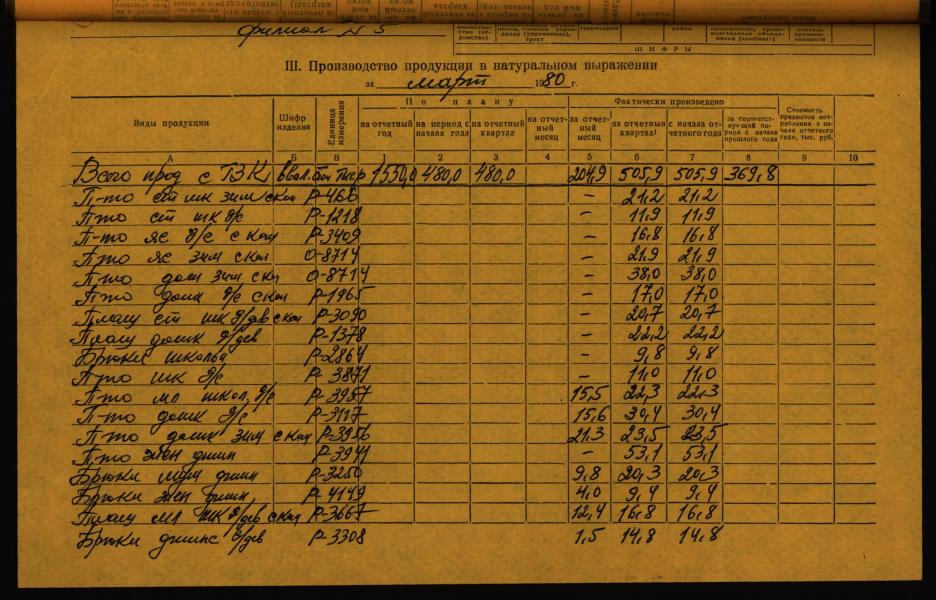 филиал N 5
ШИФРЫ
III. Производство продукции в натуральном выражении
за март 1980 г.
Виды продукции Шифр изделия Единица измерения По плану Фактически произведено Стоимость предметов потребления с начала отчетного года, тыс. руб.
на отчетный год на период с начала года на отчетный квартал на отчетный месяц за отчетный месяц за отчетный квартал с начала отчетного года за соответствующий период с начала прошлого года
А Б В 1 2 3 4 5 6 7 8 9 10
Всего прод с ТЗК 1550,0 480,0 480,0 204,9 505,9 505,9 369,8
П-то ст шк зим скои Р-466 – 21,2 21,2
П-то ст шк д/с Р-1218 – 11,9 11,9
П-то яс д/с с кои Р-3409 – 16,8 16,8
П-то яс зим скои О-8714 – 21,9 21,9
П-то дош зим ски О-8714 – 38,0 38,0
П-то дошк д/с скои Р-1965 – 17,0 17,0
Плащ ст шк д/дев скои Р-3090 – 20,7 20,7
Плащ дошк д/дев Р-1378 – 22,2 22,2
Брюки школьн Р-2864 – 9,8 9,8
П-то шк д/с Р-3871 – 11,0 11,0
П-то мл школ. д/с Р-3957 15,5 22,3 22,3
П-то дошк д/с Р-3117 15,6 30,4 30,4
П-то дошк зим скои Р-3956 21,3 23,5 23,5
П-то жен джин Р-3941 – 53,1 53,1
Брюки муж джин Р-3250 9,8 20,3 20,3
Брюки жен джин, Р-4149 4,0 9,4 9,4
Плащ мл шк д/дев скои Р-3667 12,4 16,8 16,8
Брюки джинс д/дев Р-3308 1,5 14,8 14,8